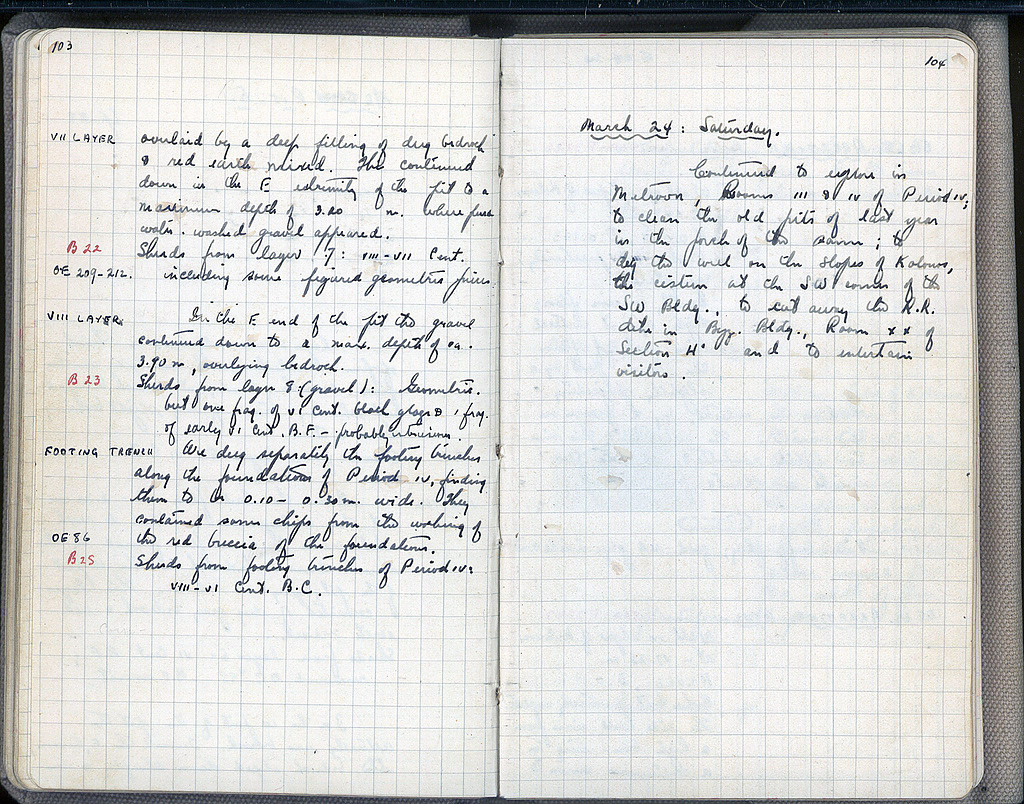 103
VII LAYER overlaid by a deep filling of dug bedrock
& red earth mixed. This continued
down in the E extremity of the pit to a
maximum depth of 3.20 m. where fine
water-washed gravel appeared.
B 22 Sherds from layer 7: VIII-VII Cent.
OE 209-212. including some figured geometric pieces.
VIII LAYER. In the E end of the pit the gravel
continued down to a max. depth of ca.
3.90 m, overlying bedrock.
B 23 Sherds from layer 8 (gravel): Geometric.
but one frag. of VI Cent. black glaze & 1 frag.
of early VI Cent. B.F. - probably intrusion.
FOOTING TRENCH We dug separately the footing trenches
along the foundations of Period IV, finding
them to be 0.10 - 0.30 m. wide. They
contained some chips from the working of
OE 86 the red breccia of the foundations.
B 25 Sherds from footing trenches of Period IV:
VIII-VI Cent. B.C.
104
March 24: Saturday.
Continued to explore in
Metroon, Rooms III & IV of Period IV;
to clean the old pits of last year
in the porch of the same; to
dig the well on the slopes of Kolonos,
the cistern at the SW corner of the
SW Bldg., to cut away the R.R.
dike in Byz. Bldg., Room XX of
Section H' and to entertain
visitors.